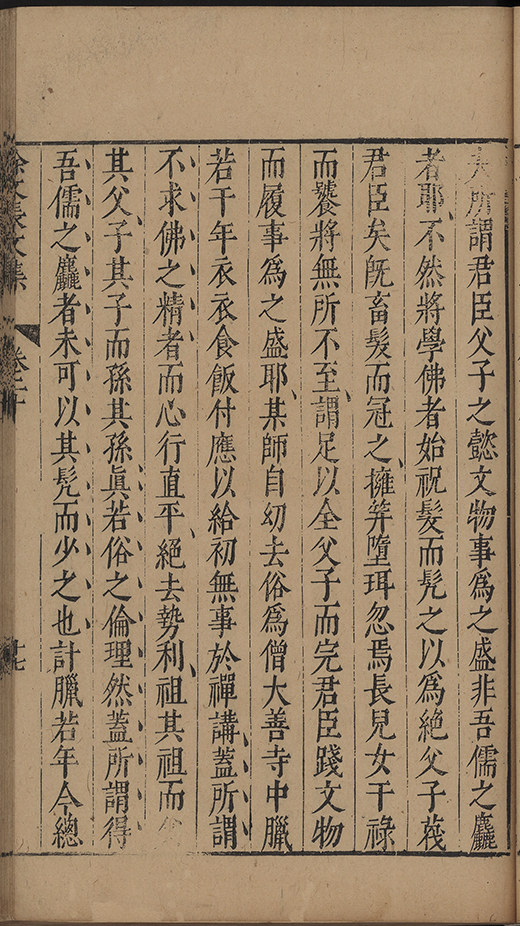 夫所謂君臣父子之懿文物事為之盛非吾儒之麤
者耶不然將學佛者始祝髮而髠之以為絕父子蔑
君臣矣旣畜髮而冠之擁笄墮珥忽焉長兒女干祿
而饕將無所不至謂足以全父子而完君臣踐文物
而履事為之盛耶某師自幼去俗為僧大善寺中臘
若干年衣衣食飯付應以給初無事於禪講蓋所謂
不求佛之精者而心行直平絕去勢利祖其祖而
其父子其子而孫其孫眞若俗之倫理然蓋所謂得
吾儒之麤者未可以其髠而少之也計臘若年今總
徐文長文集 卷二十 十七